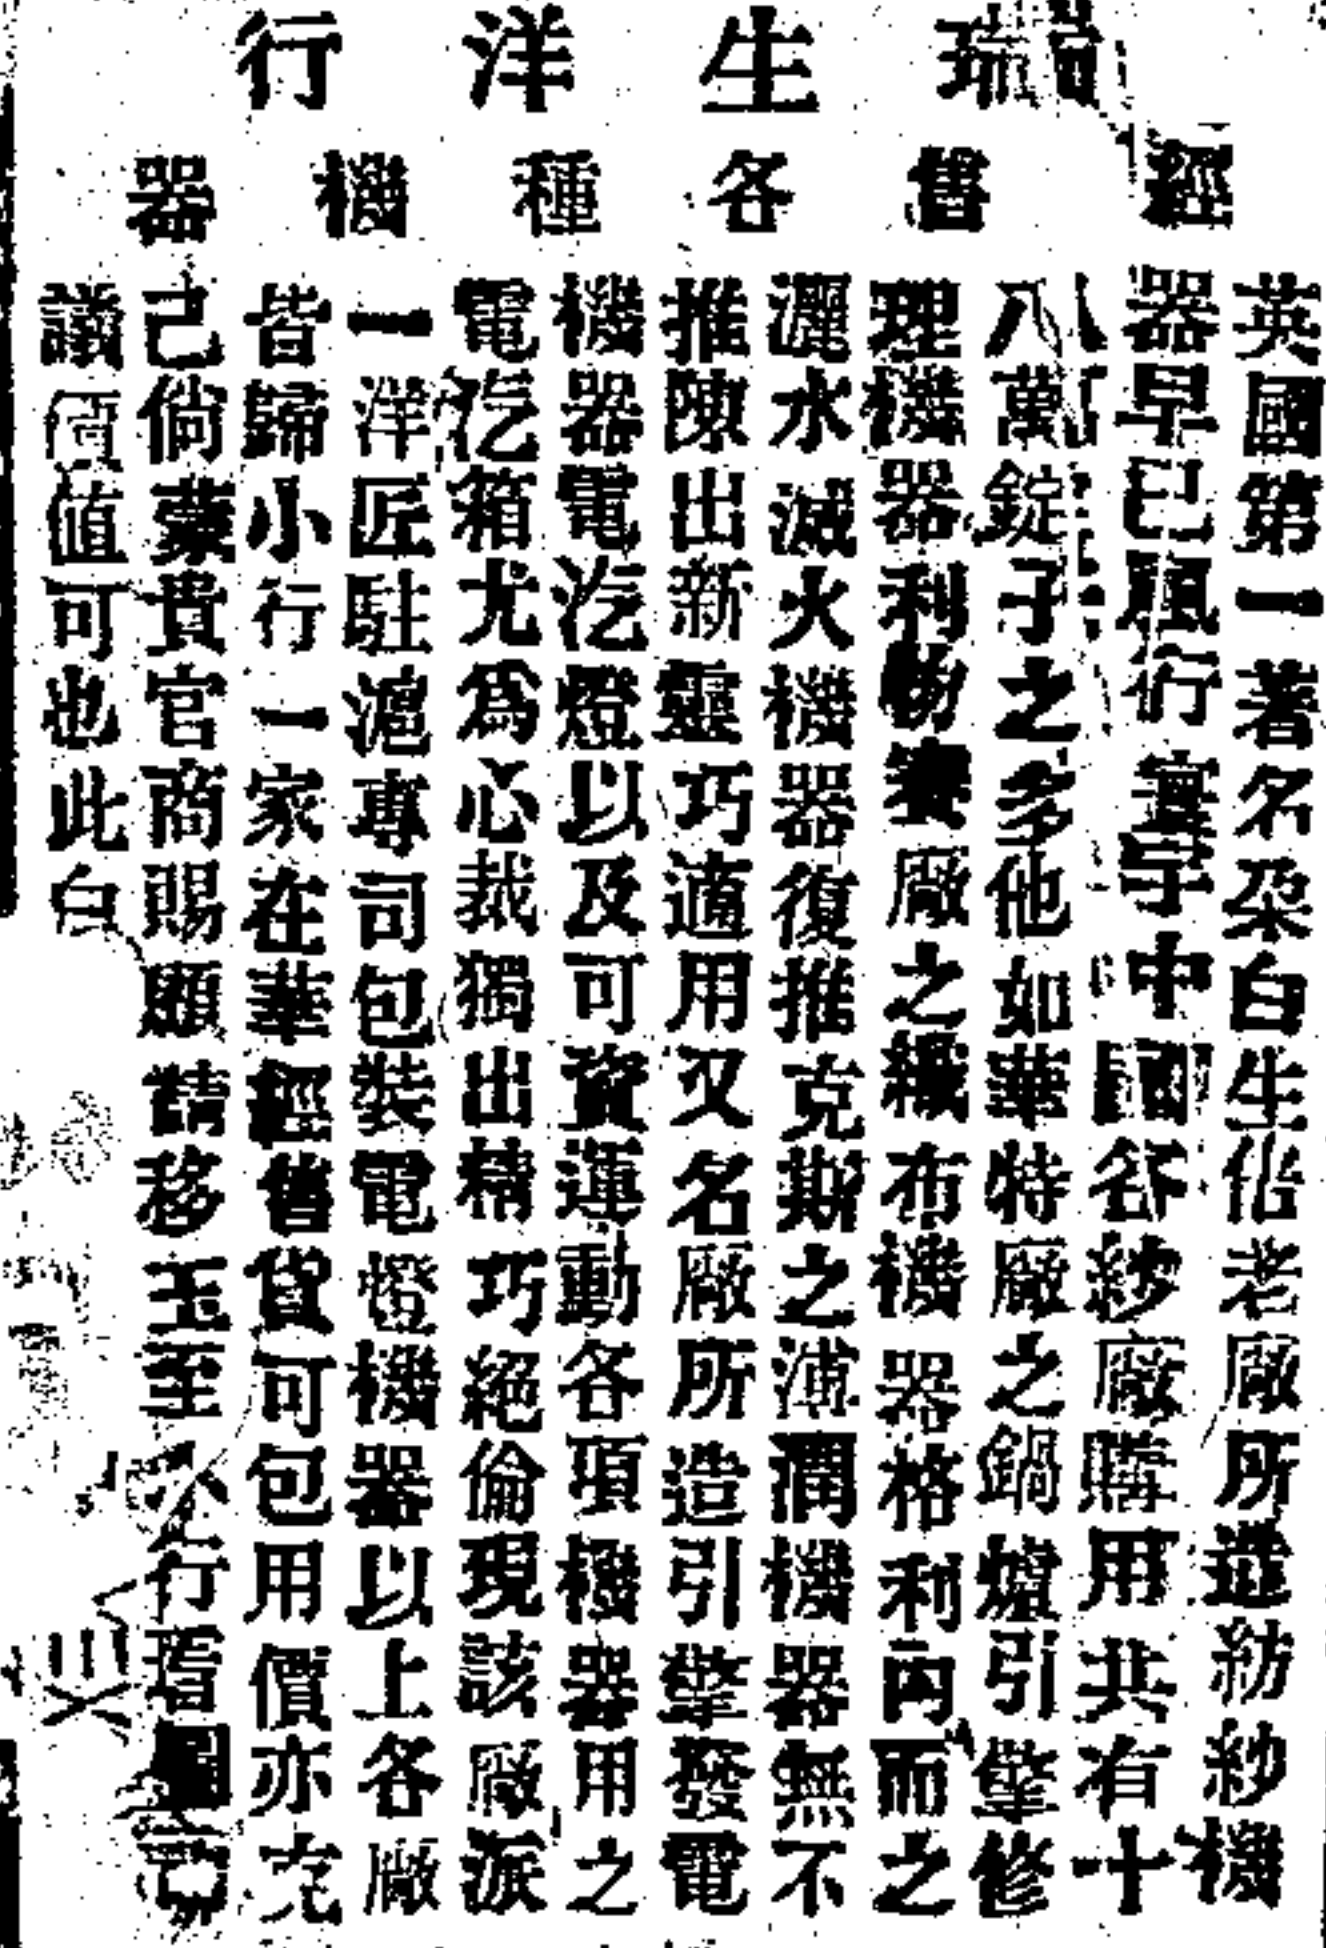 瑞生洋行
經售各種機器
英國第一著名朶白生佁老廠所造紡紗機
器早已風行寰宇中國各紗廠購用共有十
八萬錠子之多他如華特廠之鍋爐引擎修
理機器利物襲廠之織布機器格利丙而之
灑水滅火機器復推克斯之溥潤機器無不
推陳出新靈巧適用又名廠所造引擎發電
機器電汽燈以及可資運動各項機器用之
電汽箱尤為心裁獨出精巧絕倫現該廠派
一洋匠駐滬專司包裝電燈機器以上各廠
皆歸小行一家在華經售貨可包用價亦克
己倘蒙貴官商賜顧請移玉至小行看圖
議價值可也此白